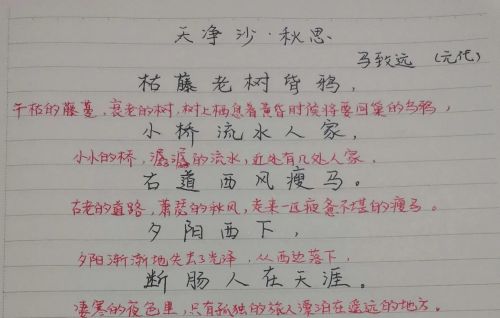 天净沙·秋思
马致远（元代）
枯藤老树昏鸦，
干枯的藤蔓，衰老的树，树上栖息着黄昏时候将要回巢的乌鸦，
小桥流水人家，
小小的桥，潺潺的流水，近处有几处人家，
古道西风瘦马。
古老的道路，萧瑟的秋风，走来一匹疲惫不堪的瘦马。
夕阳西下，
夕阳渐渐地失去了光泽，从西边落下，
断肠人在天涯。
凄寒的夜色里，只有孤独的旅人漂泊在遥远的地方。